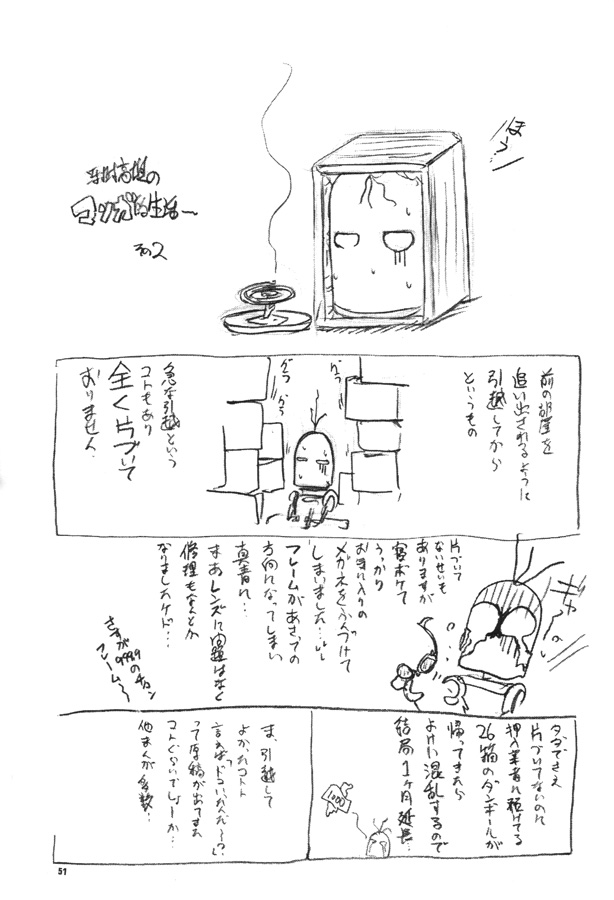 的生活〜
その2
ほうー
前の部屋を
追い出されるように
引越してから
というもの
ガッ
ガッ
急な引越という
コトもあり
全く片づいて
おりません.
ギャー
片づいて
ないせいも
ありますが
寝ボケて
うっかり
お気に入りの
メガネをふんづけて
しまいました…
フレームがあさっての
方向になってしまい
真青に…
まあレンズに問題はなく
修理もなんとか
なりましたケド…
さすが
9999のチタン
フレーム〜
タダでさえ
片づいてないのに
押入業者に預けてる
26箱のダンボールが
帰ってきたら
よけい混乱するので
結局1ヶ月延長…
1000
ま、引越して
よかったコト
言えば「ドコいかんだ〜!?」
って原稿が出てきた
コトぐらいでしょーか…
他まんが多数…
51